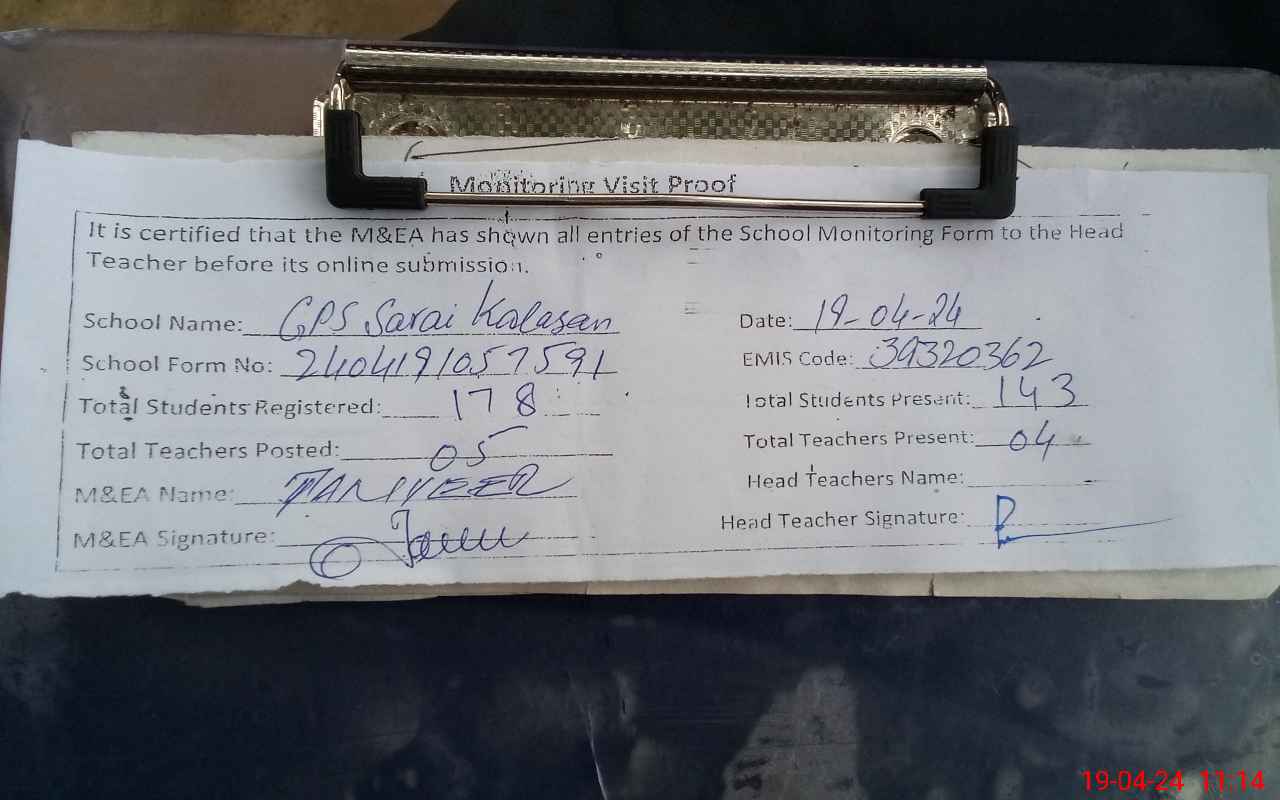 Monitoring Visit Proof
It is certified that the M&EA has shown all entries of the School Monitoring Form to the Head
Teacher before its online submission.
School Name: GPS Sarai Kalasan Date: 19-04-24
School Form No: 2404191057591 EMIS Code: 39320362
Total Students Registered: 178 Total Students Present: 143
Total Teachers Posted: 05 Total Teachers Present: 04
M&EA Name: TANVEER Head Teachers Name:
M&EA Signature: Head Teacher Signature:
19-04-24 11:14